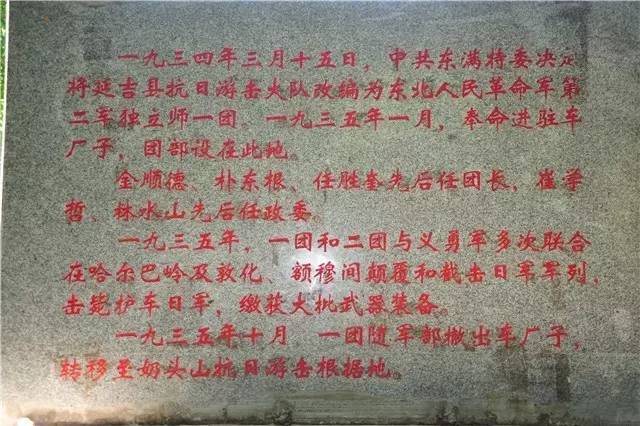 一九三四年三月十五日，中共东满特委决定
将延吉县抗日游击大队改编为东北人民革命军第
二军独立师一团。一九三五年一月，奉命进驻车
厂子，团部设在此地。
金顺德、朴东根、任胜奎先后任团长，崔学
哲、林水山先后任政委。
一九三五年，一团和二团与义勇军多次联合
在哈尔巴岭及敦化、额穆间颠覆和截击日军军列，
击毙护车日军，缴获大批武器装备。
一九三五年十月 一团随军部撤出车厂子，
转移至奶头山抗日游击根据地。